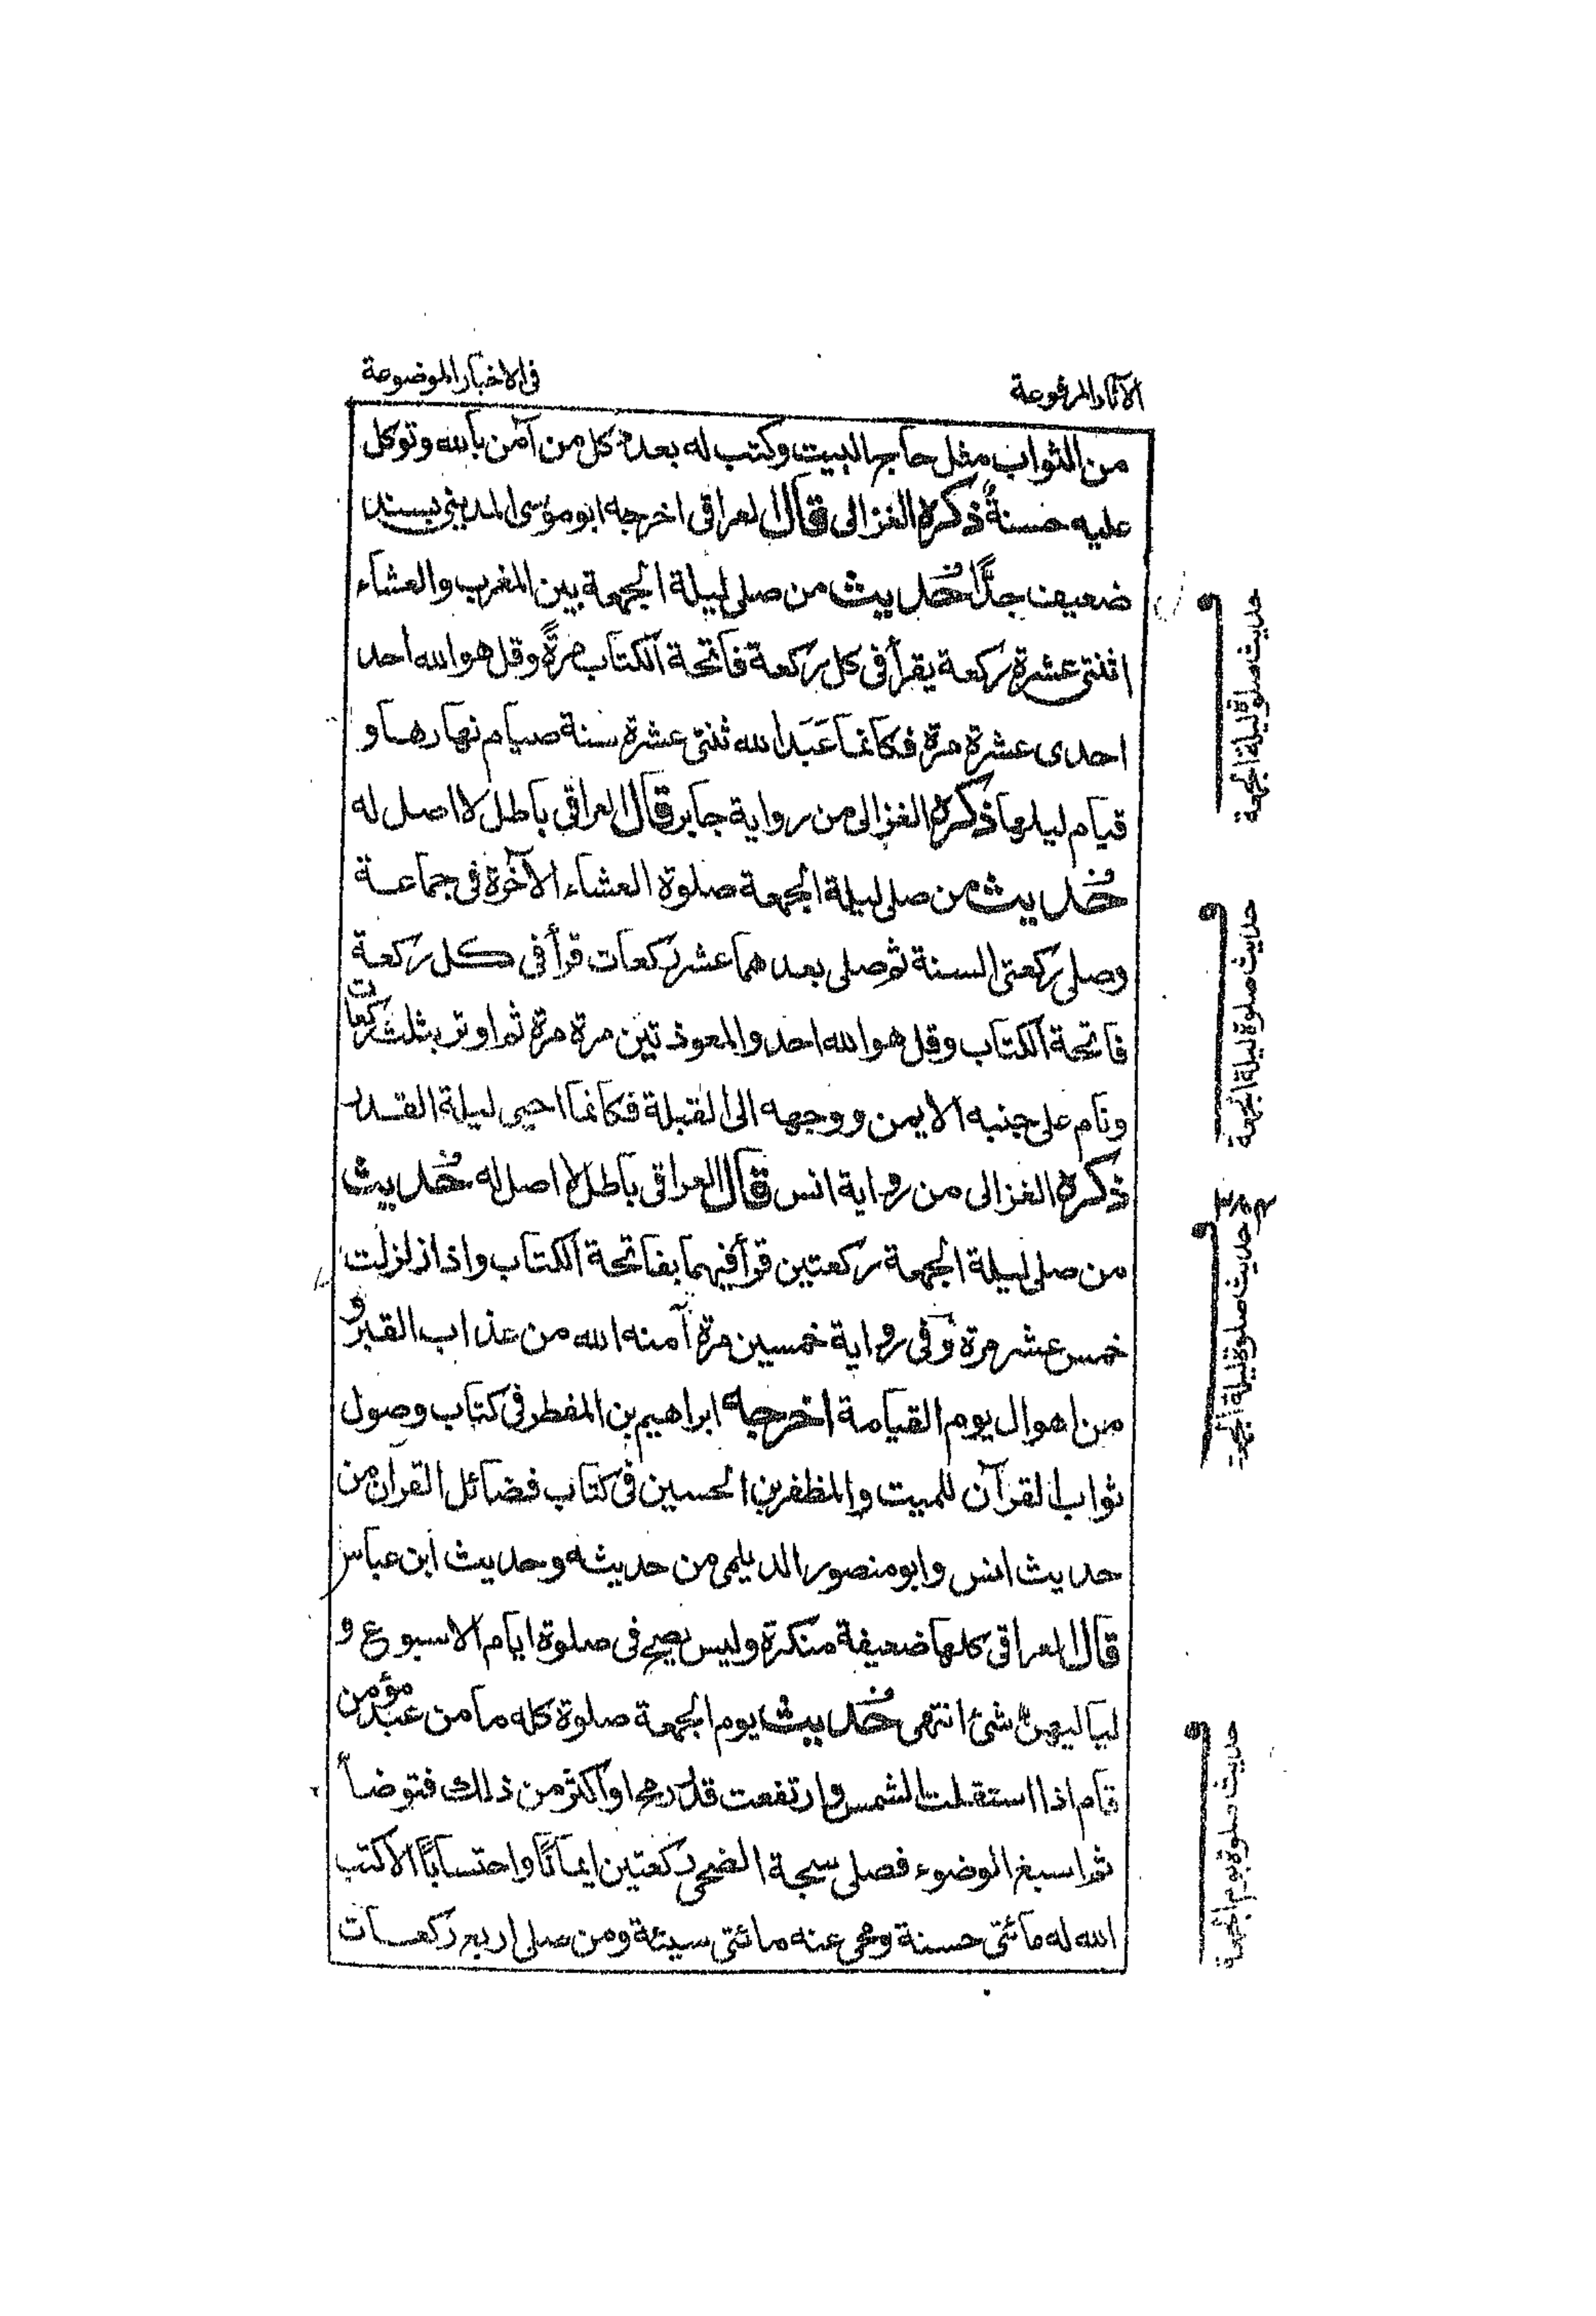 الآثار المرفوعة
فى الاخبار الموضوعة
من الثواب مثل حاج البيت وكتب له بعدد كل من آمن بالله وتوكل
عليه حسنةً ذكره الغزالى قال العراقى اخرجه ابو موسى المدينى بسند
ضعيف جدًّا حديث من صلى ليلة الجمعة بين المغرب والعشاء
اثنتى عشرة ركعة يقرأ فى كل ركعة فاتحة الكتاب مرةً وقل هو الله احد
احدى عشرة مرة فكانما عَبَدَ الله ثنتى عشرة سنة صيام نهارها و
قيام ليلها ذكره الغزالى من رواية جابر قال العراقى باطل لا اصل له
حديث من صلى ليلة الجمعة صلوة العشاء الآخرة فى جماعة
وصلى ركعتى السنة ثم صلى بعدهما عشر ركعات قرأ فى كل ركعة
فاتحة الكتاب وقل هو الله احد والمعوذتين مرة مرة ثم اوتر بثلث ركعات
ونام على جنبه الايمن ووجهه الى القبلة فكانما احيى ليلة القدر
ذكره الغزالى من رواية انس قال العراقى باطل لا اصل له حديث
من صلى ليلة الجمعة ركعتين قرأ فيهما بفاتحة الكتاب واذا زلزلت
خمس عشر مرة وفى رواية خمسين مرة آمنه الله من عذاب القبر و
من اهوال يوم القيامة اخرجه ابراهيم بن المفطر فى كتاب وصول
ثواب القرآن للميت والمظفر بن الحسين فى كتاب فضائل القرآن من
حديث انس وابو منصور الديلمى من حديثه وحديث ابن عباس
قال العراقى كلها ضعيفة منكرة وليس يصح فى صلوة ايام الاسبوع و
لياليهن شئ انتهى حديث يوم الجمعة صلوة كله ما من عبد مؤمن
قام اذا استقلت الشمس وارتفعت قدر رمح او اكثر من ذلك فتوضأ
ثم اسبغ الوضوء فصلى سبحة الضحى ركعتين ايمانًا واحتسابًا الا كتب
الله له مائتى حسنة ومحى عنه مائتى سيئة ومن صلى اربع ركعات
حديث صلوة ليلة الجمعة
حديث صلوة ليلة الجمعة
حديث صلوة ليلة الجمعة
حديث صلوة يوم الجمعة